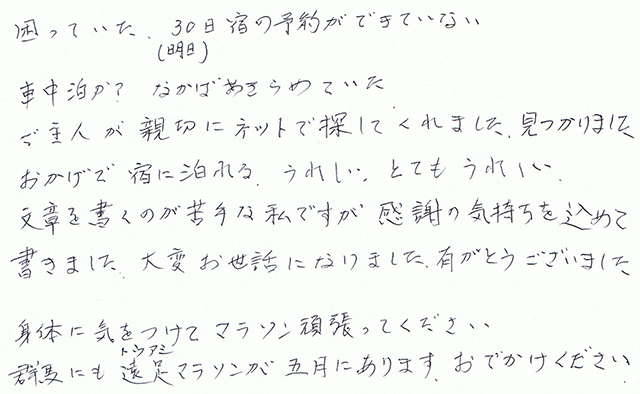 困っていた、30日宿の予約ができていない
(明日)
車中泊か? なかばあきらめていた
ご主人が親切にネットで探してくれました、見つかりました
おかげで宿に泊れる、うれしい、とてもうれしい、
文章を書くのが苦手な私ですが感謝の気持ちを込めて
書きました、大変お世話になりました、有がとうございました
身体に気をつけてマラソン頑張ってください
トウアシ
群馬にも遠足マラソンが五月にあります、おでかけください